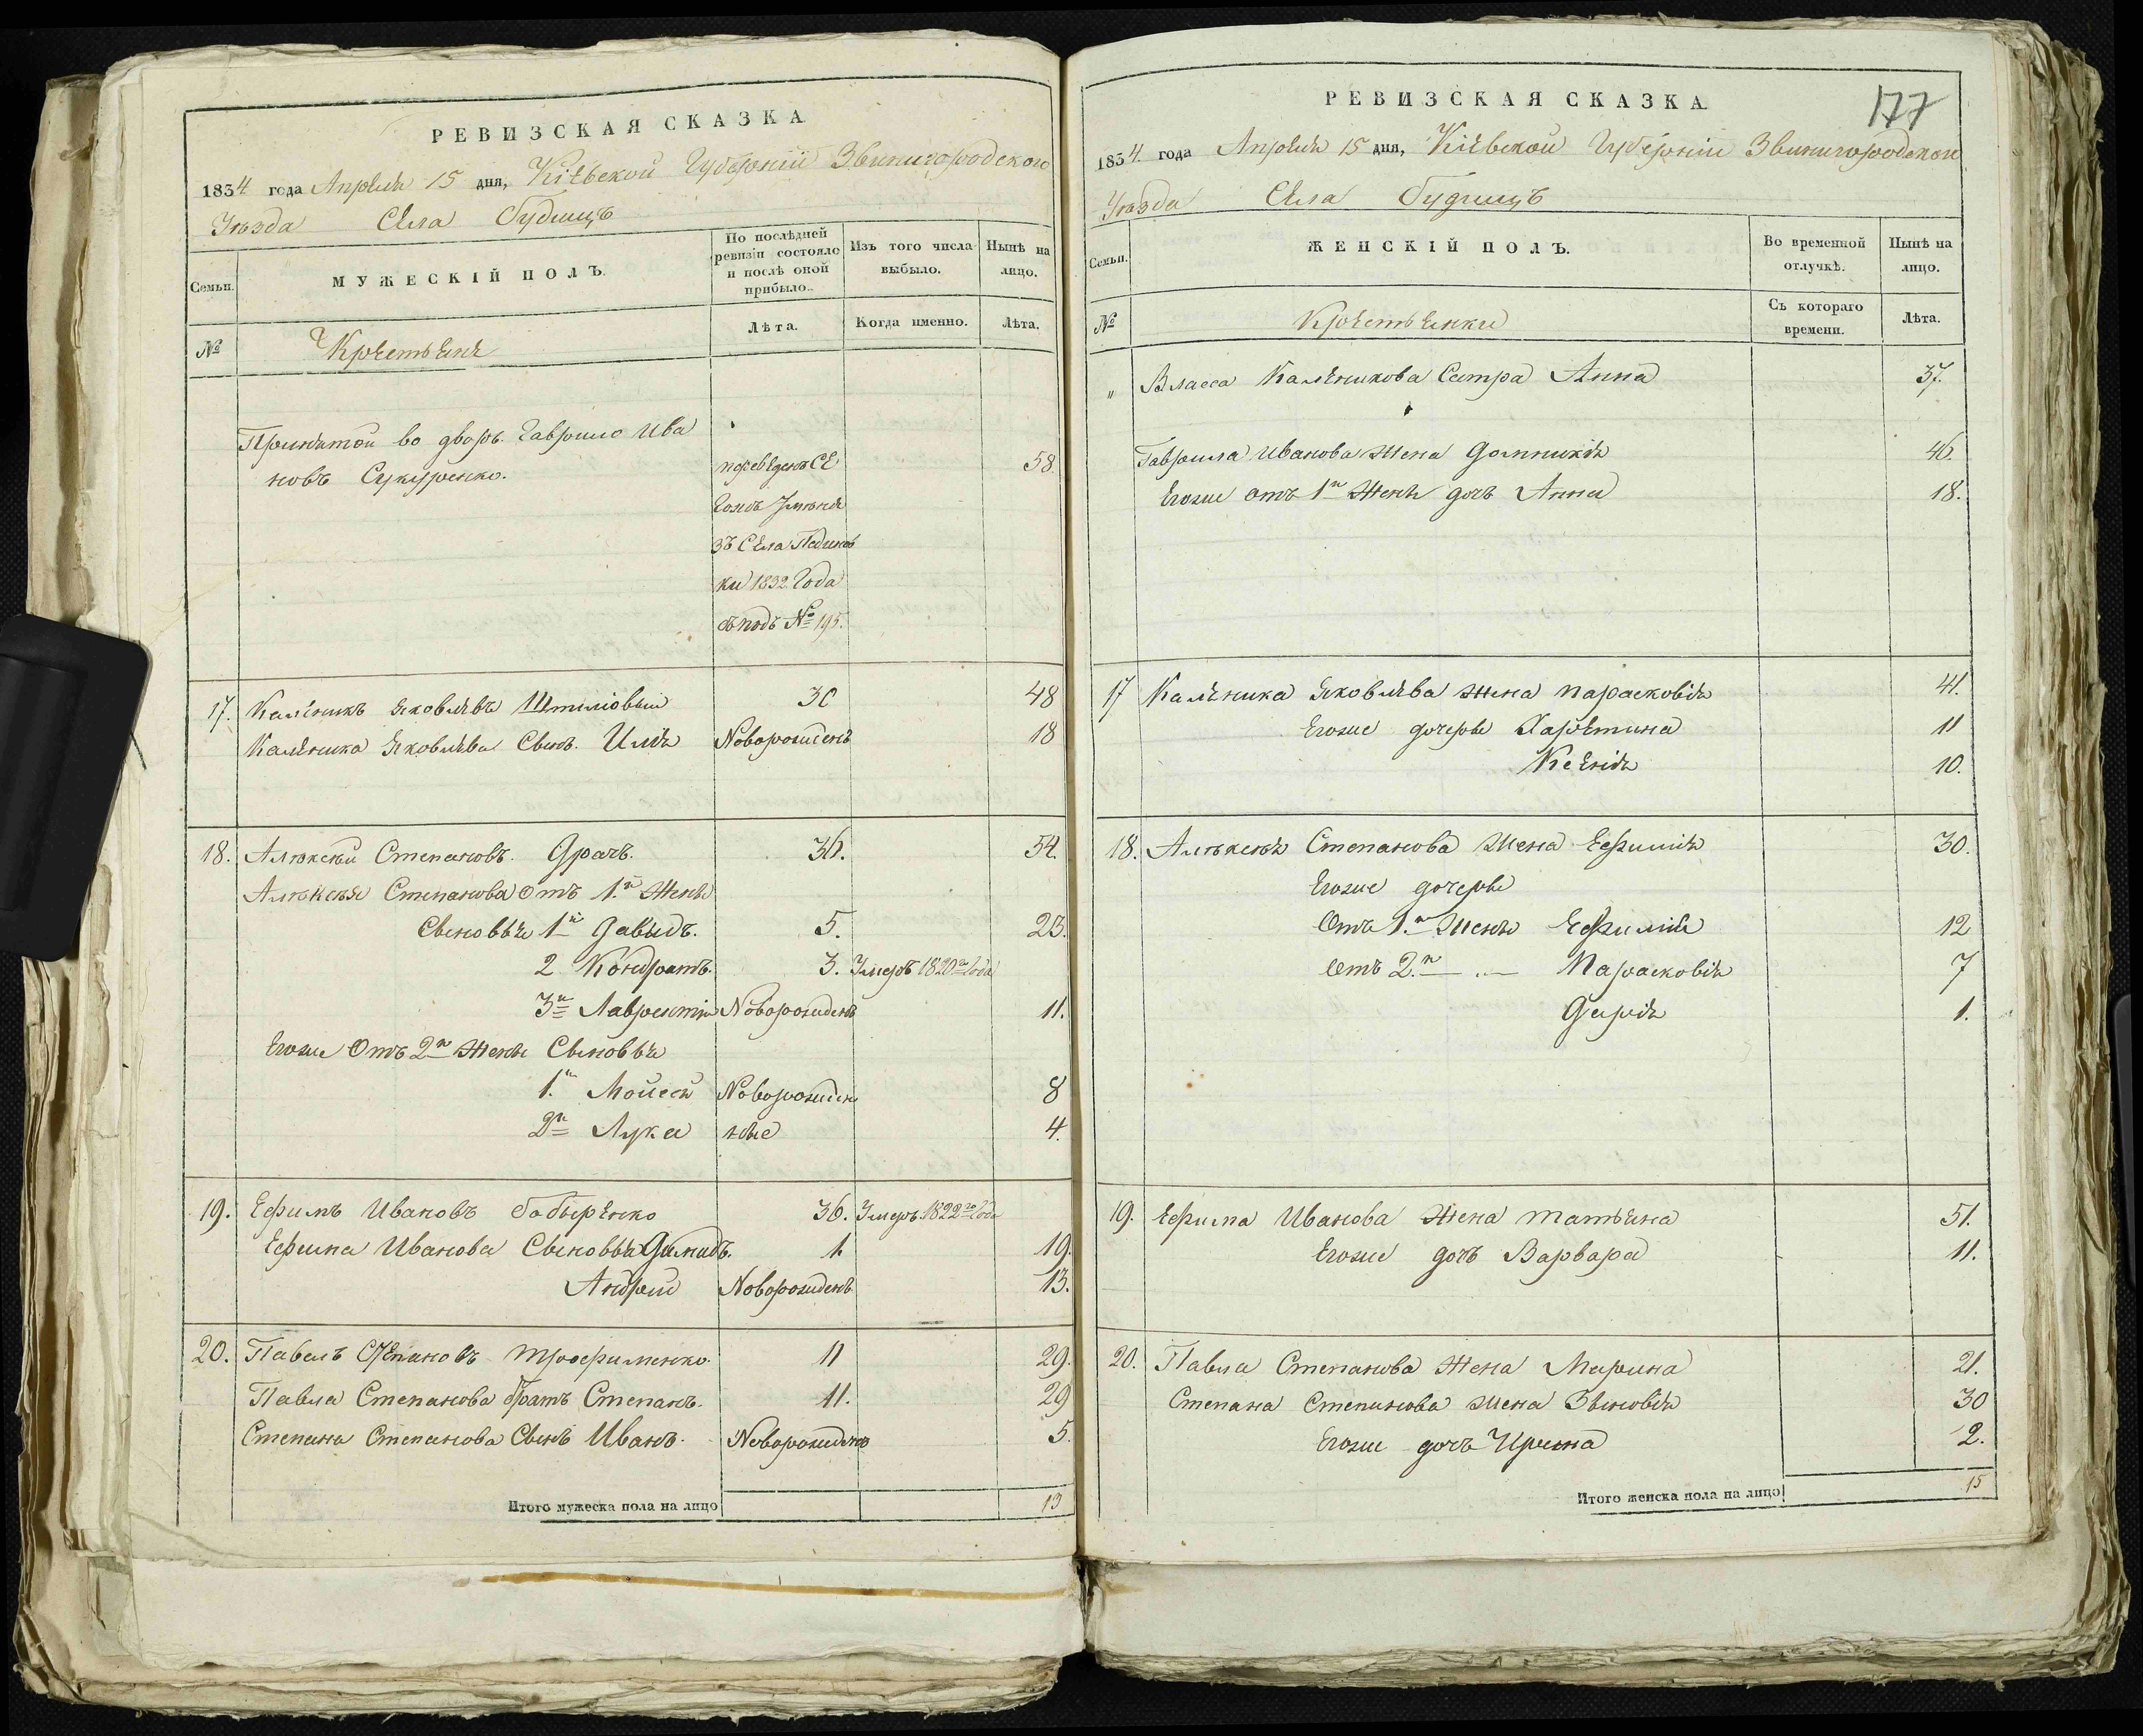 РЕВИЗСКАЯ СКАЗКА
1834 года Апреля 15 дня, Кіевской Губерніи Звинигородского
Уѣзда Села Будищъ
Семьи.
МУЖЕСКІЙ ПОЛЪ.
По послѣдней ревизіи состояло и послѣ оной прибыло.
Изъ того числа выбыло.
Нынѣ на лицо.
№
Крестьяне
Лѣта.
Когда именно.
Лѣта.
Принятой во дворъ Гаврило Ива
новъ Сукуренко.
переведенъ Се 58.
Гожъ Имѣня
зъ Села Пединов
ки 1832 Года
подъ № 195.
17. Каленикъ Яковлевъ 30 48
Каленика Яковлева Сынъ. Илія Новорожденъ 18
18. Алѣксѣй Степановъ. Драчъ. 36. 54.
Алѣксѣя Степанова отъ 1й Жены
Сыновья 1й Давыдъ. 5. 23.
2 Кондратъ. 3. Умеръ 1820го Года
3й Лаврентій Новорожденъ 11.
Егоже Отъ 2й Жены Сыновья
1й Мойсей Новорожден 8
2й Лука ные 4.
19. Ефимъ Ивановъ Бобыренко 36. Умеръ 1822го Года
Ефима Иванова Сыновья Димидъ. 1 19.
Андрей Новорожденъ 13.
20. Павелъ Степановъ Трофименко. 11 29.
Павла Степанова братъ Степанъ. 11. 29
Степана Степанова Сынъ Иванъ. Новорожденъ 5.
Итого мужеска пола на лицо 13
РЕВИЗСКАЯ СКАЗКА
177
1834 года Апреля 15 дня, Кіевской Губерніи Звинигородского
Уѣзда Села Будищъ
Семьи.
ЖЕНСКІЙ ПОЛЪ.
Во временной отлучкѣ.
Нынѣ на лицо.
№
Крестьянки
Съ котораго времени.
Лѣта.
" Власса Каленикова Сетра Анна 37.
Гаврила Иванова Жена Домникія 46.
Егоже отъ 1й Жены дочь Анна 18.
17 Каленика Яковлева жена Парасковія 41.
Егоже дочеры Харетина 11
Ксенія 10.
18. Алѣксѣя Степанова Жена Ефимія 30.
Егоже дочеры
Отъ 1й Жены Ефимія 12
Отъ 2й — „ — Парасковія 7
Дарія 1.
19. Ефима Иванова Жена Татьяна 51.
Егоже дочь Варвара 11.
20. Павла Степанова Жена Марина 21.
Степана Степанова жена Зѣновія 30
Егоже дочь Ирина 2.
Итого женска пола на лицо 15